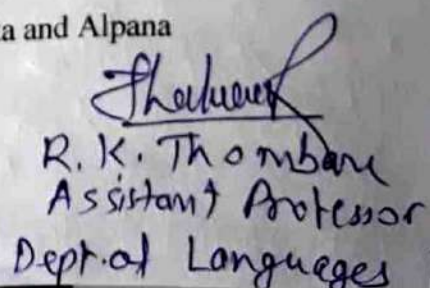 a and Alpana
R. K. Thombare
Assistant Professor
Dept. of Languages